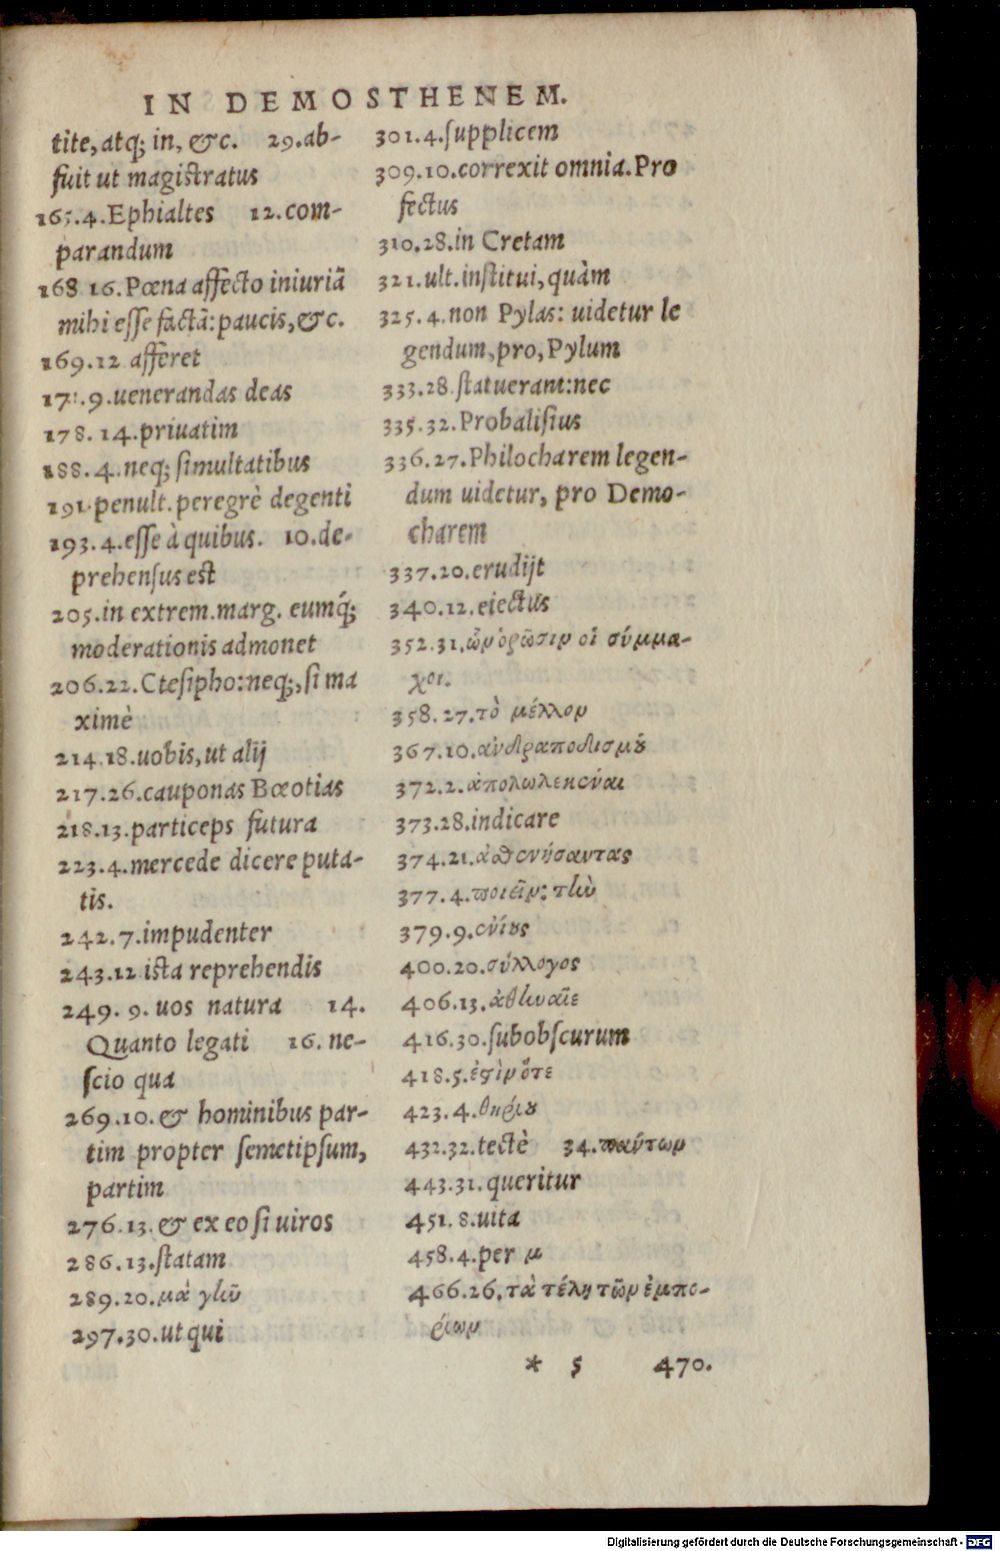 IN DEMOSTHENEM.
tite, atq; in, &c. 29. ab-
fuit ut magistratus
165.4. Ephialtes 12. com-
parandum
168 16. Pœna affecto iniuriã
mihi esse factã: paucis, &c.
169.12 afferet
171.9. uenerandas deas
178. 14. priuatim
188. 4. neq; simultatibus
191. penult. peregrè degenti
193. 4. esse à quibus. 10. de-
prehensus est
205. in extrem. marg. eumq́;
moderationis admonet
206.22. Ctesipho: neq;, si ma
ximè
214.18. uobis, ut alij
217.26. cauponas Bœotias
218.13. particeps futura
223.4. mercede dicere puta-
tis.
242.7. impudenter
243.12 ista reprehendis
249. 9. uos natura 14.
Quanto legati 16. ne-
scio qua
269.10. & hominibus par-
tim propter semetipsum,
partim
276.13. & ex eo si uiros
286.13. statam
289.20. μὰ γῆν
297.30. ut qui
301.4. supplicem
309.10. correxit omnia. Pro
fectus
310.28. in Cretam
321. ult. institui, quàm
325.4. non Pylas: uidetur le
gendum, pro, Pylum
333.28. statuerant: nec
335.32. Probalisius
336.27. Philocharem legen-
dum uidetur, pro Demo-
charem
337.20. erudijt
340.12. eiectus
352.31. ὧν ὁρῶσιν οἱ σύμμα-
χοι.
358.27. τὸ μέλλον
367.10. ανδραποδισμοῦ
372.2. ἀπολωλεκέναι
373.28. indicare
374.21. ἀσθενήσαντας
377.4. ποιεῖν: τὴν
379.9. ἐνίους
400.20. σύλλογος
406.13. ἀθῆναῖε
416.30. subobscurum
418.5. ἐστὶν ὅτε
423.4. θηρίου
432.32. tectè 34. παύτων
443.31. queritur
451. 8. uita
458.4. per μ
466.26. τὰ τέλη τῶν ἐμπο-
ρίων
* 5 470.
Digitalisierung gefördert durch die Deutsche Forschungsgemeinschaft - DFG